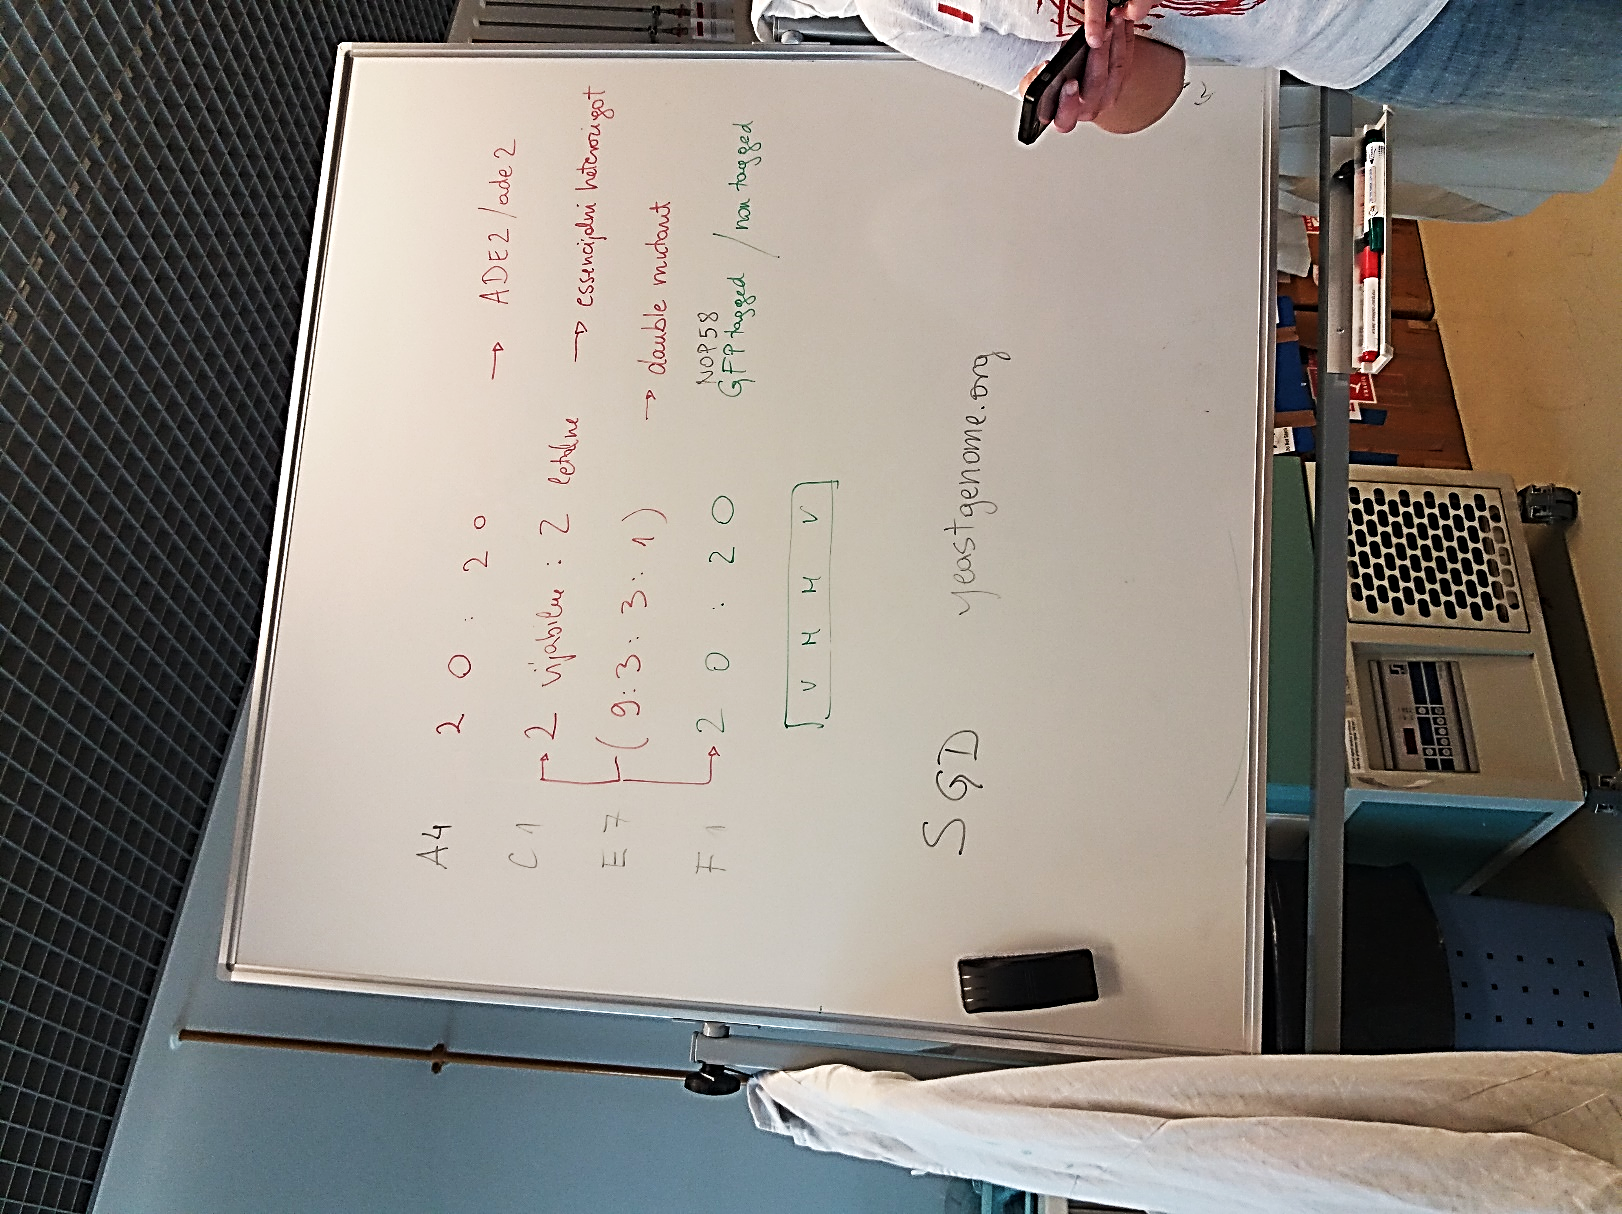 A4 2 0 : 2 0 → ADE2/ade2
C1 2 vijabilne : 2 letalne → essencijalni heterozigot
E7 (9:3:3:1) → double mutant
NOP58
F1 2 0 : 2 0 GFP tagged / non tagged
V M M V
SGD yeastgenome.org